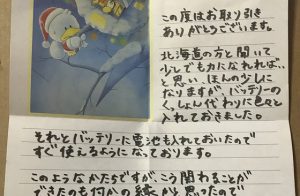 この度はお取り引き
ありがとうございます。
北海道の方と聞いて
少しでも力になれれば‥
と思い、ほんの少しに
なりますが、バッテリーの
くっしょい代わりに色々と
入れておきました。
それとバッテリーに電池も入れておいたので
すぐ使えるようになっております。
このようなかたちですが、こう関わることが
できたのも何かの縁かと思ったので